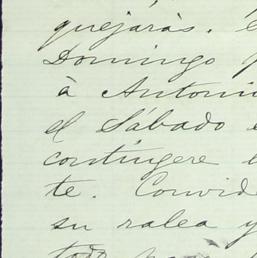 quejarás.
Domingo
à Antoni
el Sábado e
contingere e
te. Convide
su ralea y
todo